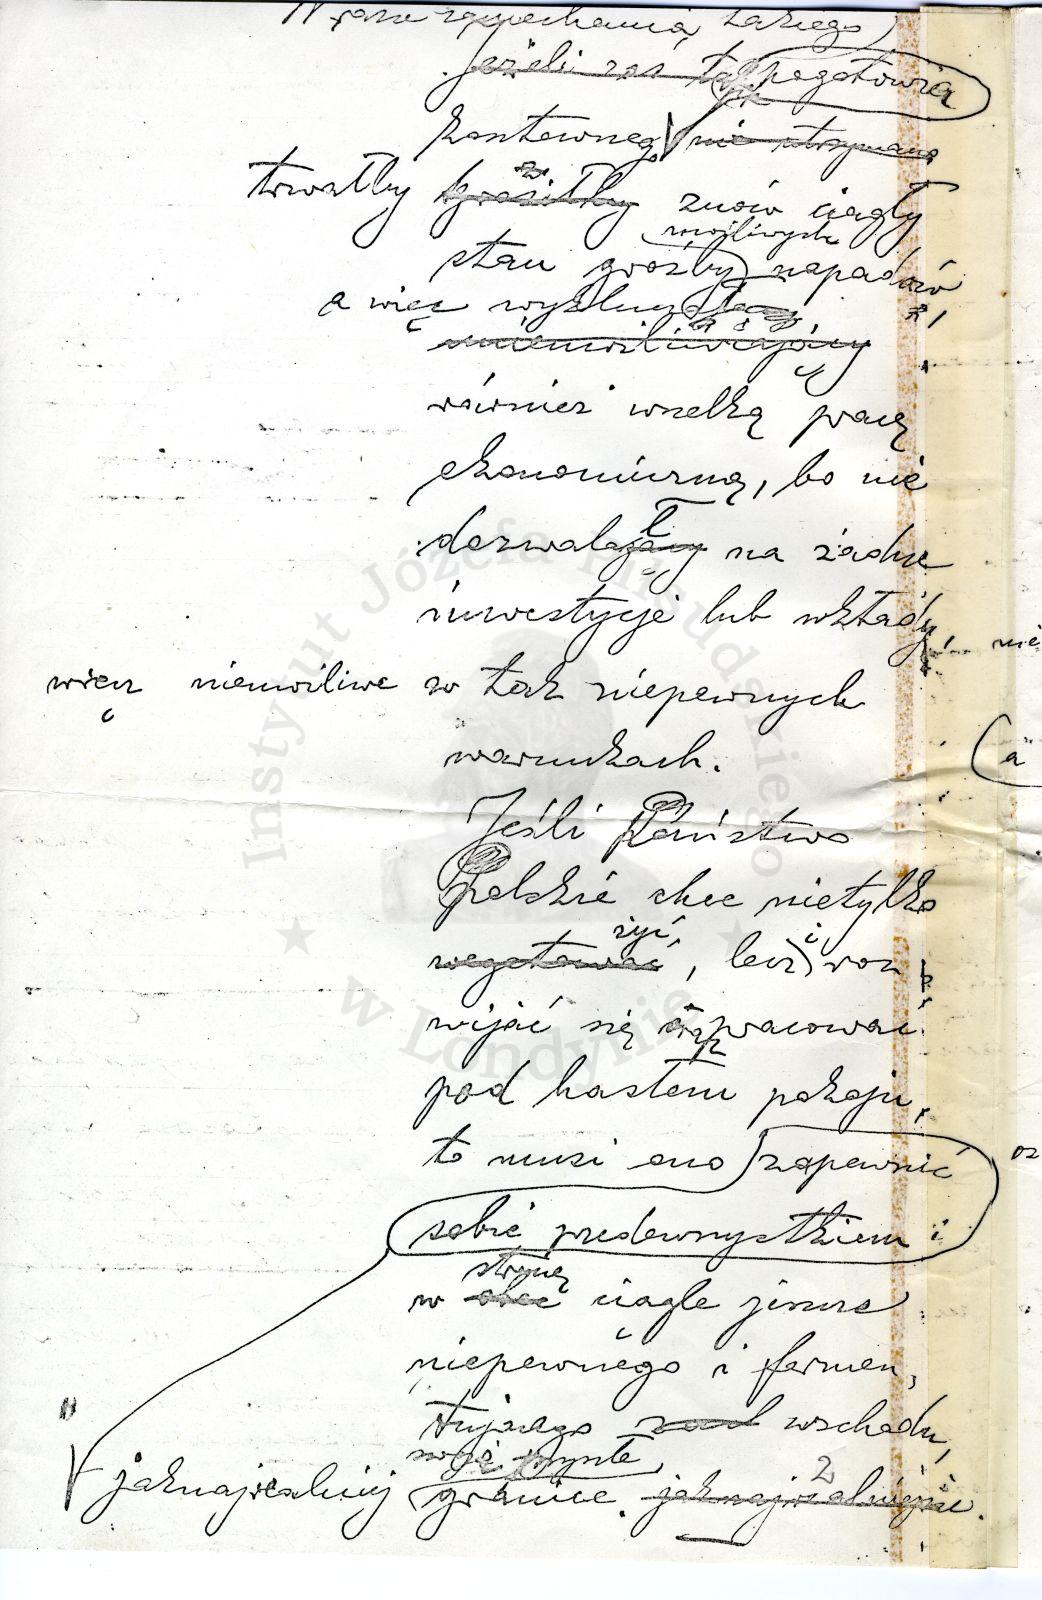 W razie zaniechania takiego
jeżeli zaś tak pogotowia
kosztownego nie utrzymano
trwałby groziłby znów ciągły
możliwych
stan groźby napadów
a więc wykluczał
uniemożliwiający
również wszelką pracę
ekonomiczną, bo nie
dozwalający na żadne
ł
inwestycje lub wkłady
więc niemożliwe w tak niepewnych
warunkach.
Jeśli Państwo
Polskie chce nietylko
żyć, i
wegetować, lecz roz
wijać się pracować
pod hasłem pokoju,
to musi ono zapewnić
sobie przedewszystkiem i
stronę
w obec ciągle jeszcze
niepewnego i fermen,
tującego wschodu,
swoje
jaknajrealniej granice. jaknajrealniejsze.
nie
(a
oz
Instytut Józefa Piłsudskiego
★ w Londynie ★